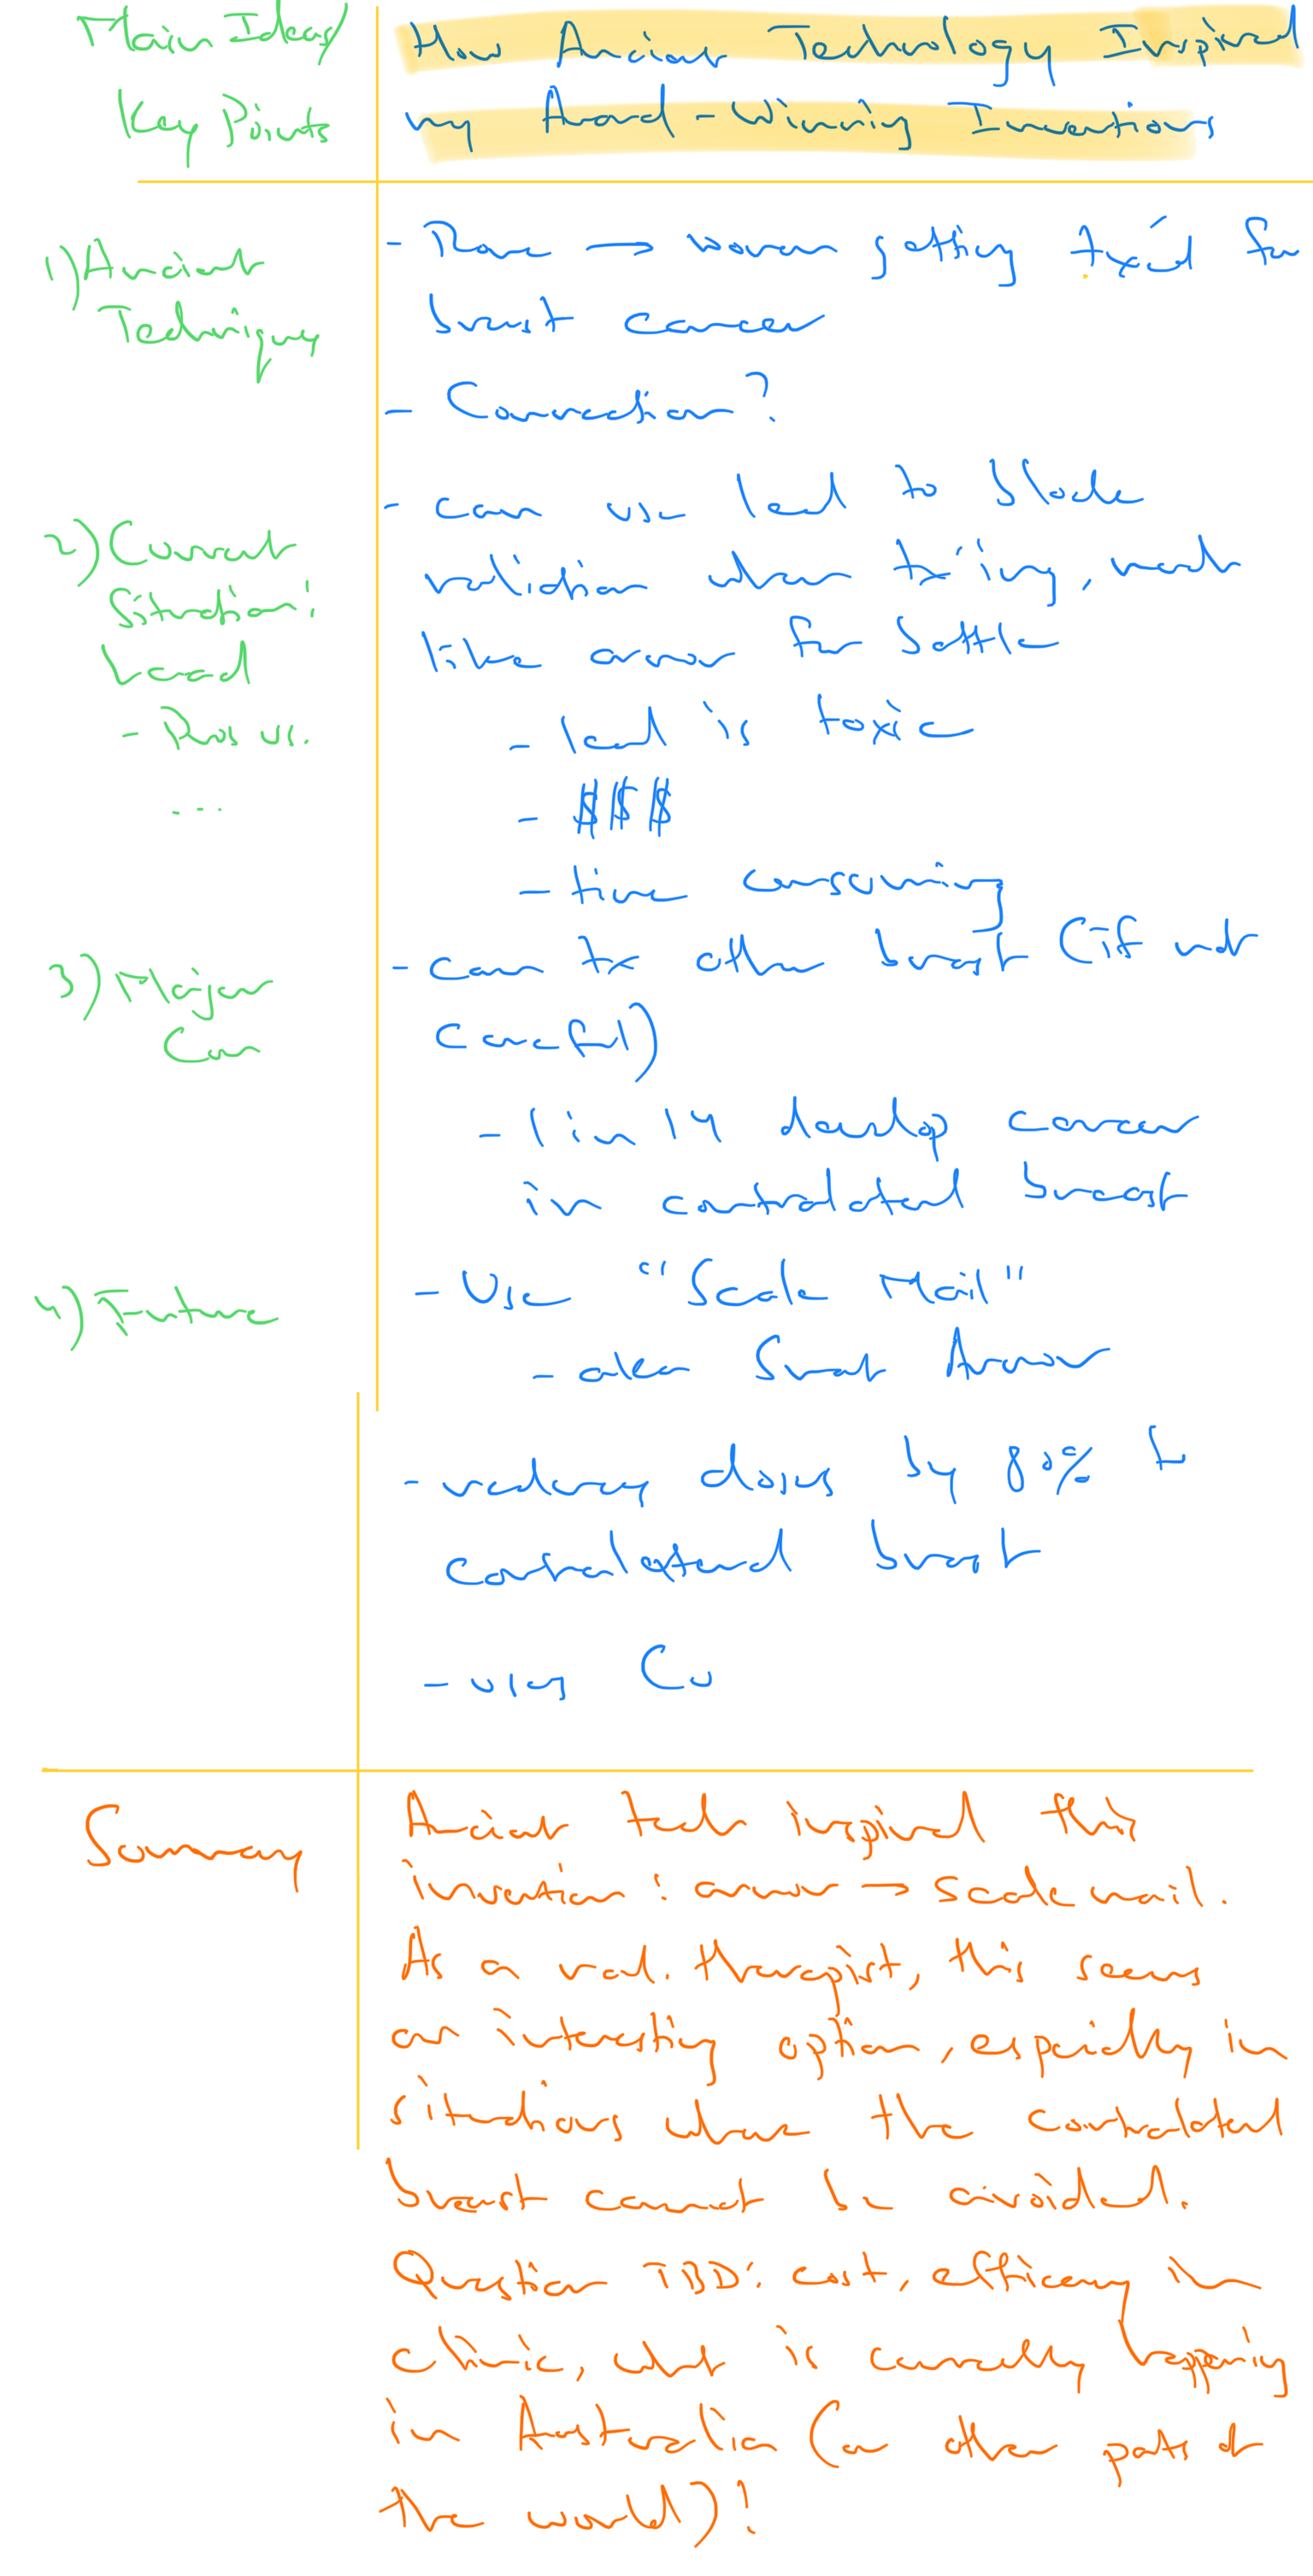 Main Ideas/
Key Points
How Ancient Technology Inspired
my Award-Winning Inventions
1) Ancient
Techniques
- Rome → women getting tx'd for
breast cancer
- Connection?
2) Current
Situation:
Lead
- Pros vs.
...
- can use lead to block
radiation when tx'ing, works
like armor for battle
- lead is toxic
- $$$
- time consuming
3) Major
Con
- can tx other breast (if not
careful)
- 1 in 14 develop cancer
in contralateral breast
4) Future
- Use "Scale Mail"
- aka Smart Armor
- reduces doses by 80% to
contralateral breast
- uses Cu
Summary
Ancient tech inspired this
invention: armor → scale mail.
As a rad. therapist, this seems
an interesting option, especially in
situations where the contralateral
breast cannot be avoided.
Question TBD: cost, efficacy in
clinic, what is currently happening
in Australia (or other parts of
the world)!